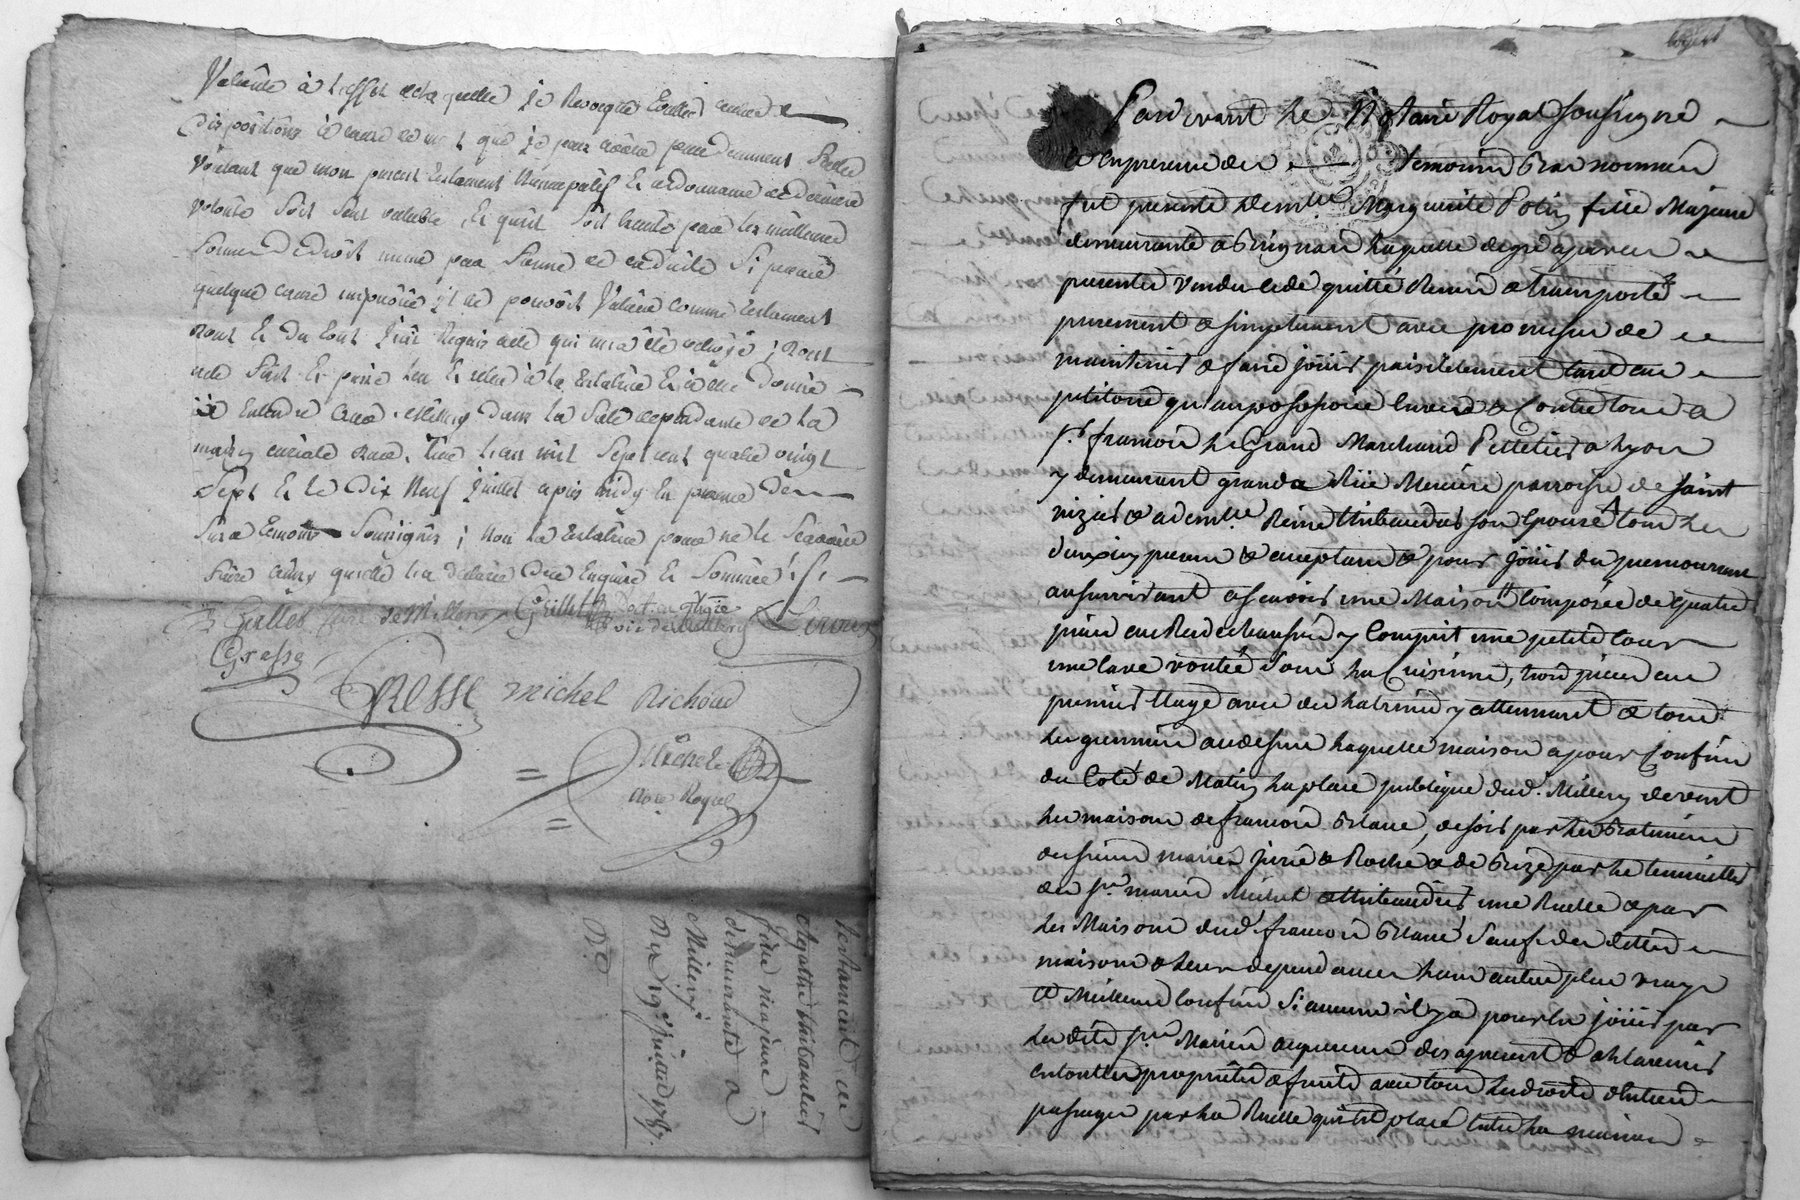 Valable à l'effet de laquelle je Revoque toutes autres
dispositions à cause de mort que je peux avoir precedemment faites
voulant que mon present testament Nuncupatif Et ordonnance de derniere
volonté soit seul valable, Et qu'il soit traité par les meilleures
formes de droit même par forme de codicile si par
quelque cause impreûe il ne pouvoit Valoir comme testament
dont Et du tout j'ai Requis acte qui m'a été octroyé; dont
acte fait Et passé leu Et releu à la testatrice
à Millery dans la sale dependante de la
maison curiale L'an mil Sept cent quatre vingt
Sept Et le Dix Neuf Juillet apres midy En presence des
temoins Soussignés; Non la testatrice pour ne le Scavoir
faire ainsy qu'elle l'a declaré de ce Enquise Et Sommée
Grillet Curé de Millery Grillet vic. de Millery
Grasse
GRESSE michel Richoud
Michel
nore Royal
testament de
Agathe thibaudier
fille majeure
demeurante à
Millery
Du 19e Juillet 1787.
Pardevant Le Notaire Royal soussigné
et En presence des temoins Bas nommés
fut presente Demlle Marguerite Potin fille Majeure
demeurante a Brignais Laquelle de gré a par ces
presentes vendu cedé quitté Remis et transporté
purement et simplement avec promesse de
maintenir et faire jouir paisiblement tant au
petitoire qu'au possessoire Envers et Contre tous a
sr francois Le Grand Marchand Pelletier a Lyon
y demeurant grande Rüe Merciere parroisse de Saint
nizier et a demlle Reine thibaudier son Epouse tous Les
deux icy presens et acceptans et pour jouir du premourant
au survivant a scavoir une Maison Composée de quatre
pieces au Rez de chaussée y Compris une petite Cour
une Cave voutée sous La Cuisine, trois pieces au
premier Etage avec des Latrines y attennant et tous
Les greniers au dessus Laquelle maison a pour Confins
du Coté de Matin La place publique dud. Millery devent
Les maisons de francois Blanc, de soir par Les Batimens
des sieurs mariés juré et Roche et de Bize par Le tenement
des srs mariés Michel et thibaudier une Ruelle et par
Les Maisons dud. francois Blanc Sauf des dittes
maisons et Leurs dependances Leurs autres plus vrays
et Meilleurs Confins Si aucuns il y a pour En jouir par
Les dits srs Mariés acquereurs dès a present et a L'avenir
En toutte proprieté et fruits avec tous Les droits d'Entrée
passage par La Ruelle qui est placé Entre La maison